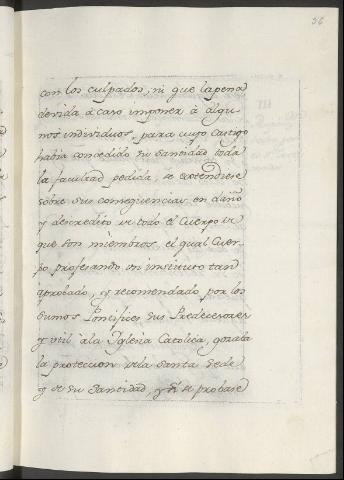 56
con los culpados, ni que la pena
devida à caso imponer à algu
nos individuos, para cuyo castigo
havia concedido su Santidad toda
la facultad pedida, se extendiese
sobre sus consequencias en daño
y descredito de todo el Cuerpo de
que son miembros, el qual Cuer-
po profesando un instituto tan
aprobado, y recomendado por los
Sumos Pontifices sus Predecesores
y util à la Yglesia Catolica, gozaba
la proteccion de la Santa Sede
y de su Santidad, y si se probase